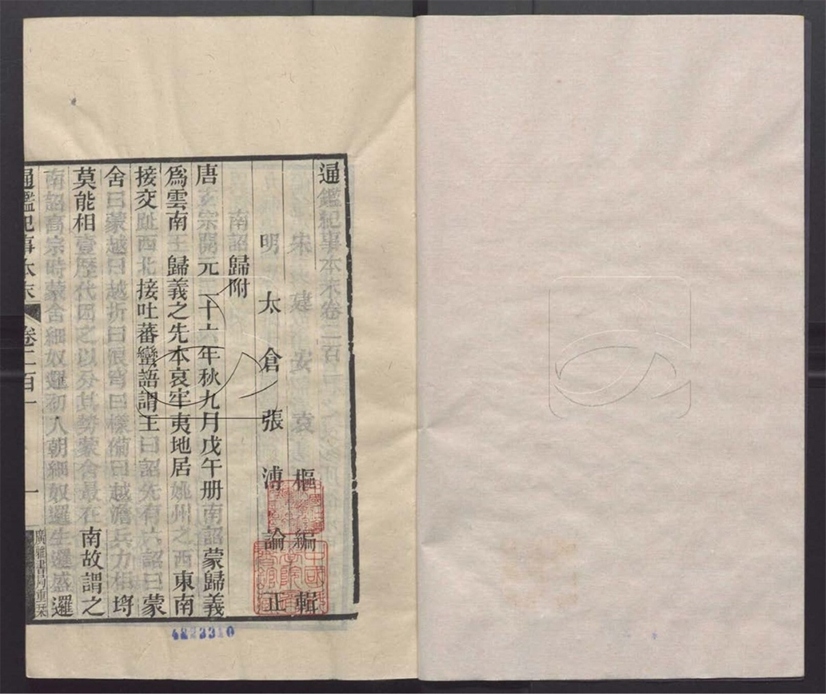 通鑑紀事本末卷二百一
宋建安袁樞編輯
明太倉張溥論正
南詔歸附
唐玄宗開元二十六年秋九月戊午册南詔蒙歸義
為雲南王歸義之先本哀牢夷地居姚州之西東南
接交趾西北接吐蕃蠻語謂王曰詔先有六詔曰蒙
舍曰蒙越曰越析曰浪穹曰樣備曰越澹兵力相埒
莫能相壹歷代因之以分其勢蒙舍最在南故謂之
南詔高宗時蒙舍細奴邏初入朝細奴邏生邏盛邏
通鑑紀事本末 卷二百一 一 廣雅書局重栞
4823310